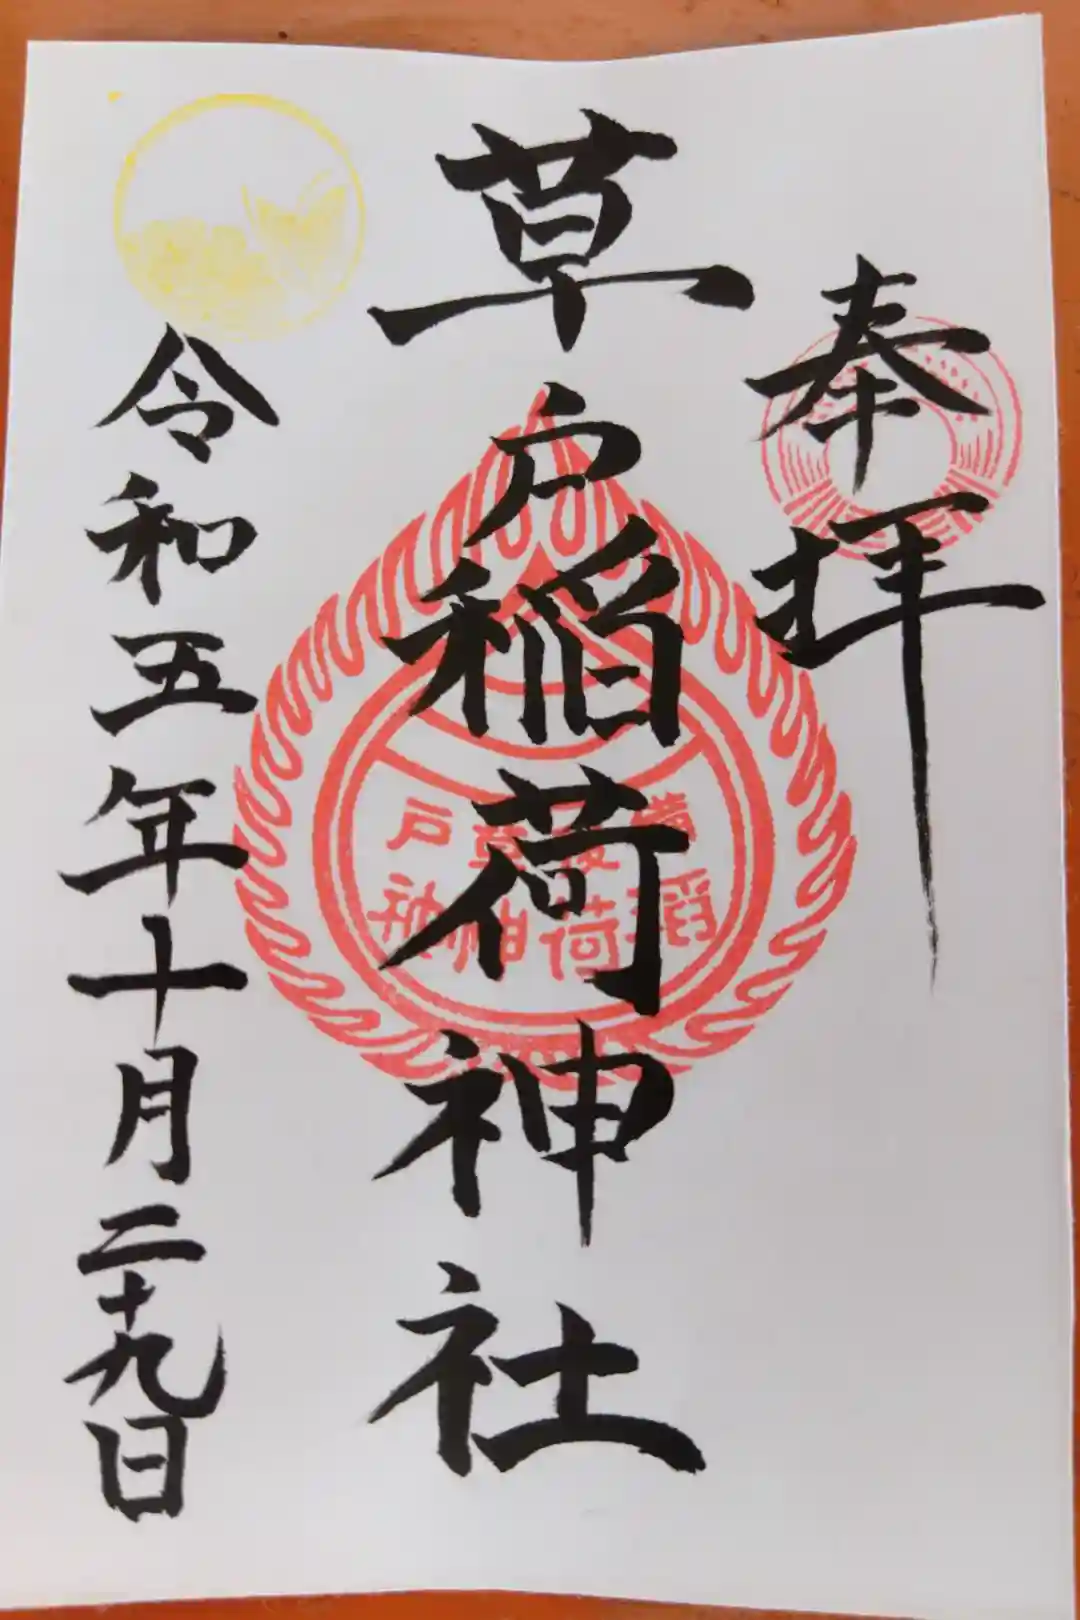 奉拝
草戸稲荷神社
備後草戸
稲荷神社
令和五年十月二十九日